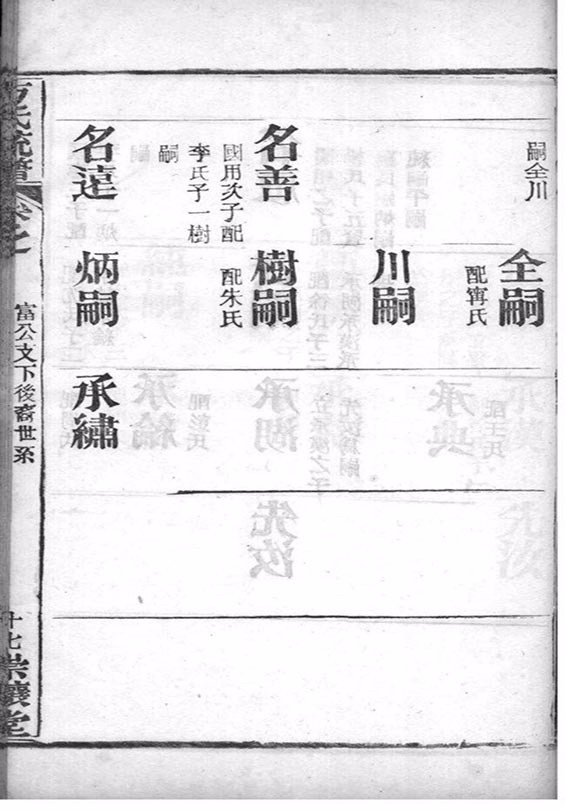 嗣全川
名善
國用次子配
李氏子一樹
嗣
名逹
全嗣
配寗氏
川嗣
樹嗣
配朱氏
炳嗣
承繡
氏統譜
卷之
富公文下後裔世系
十七